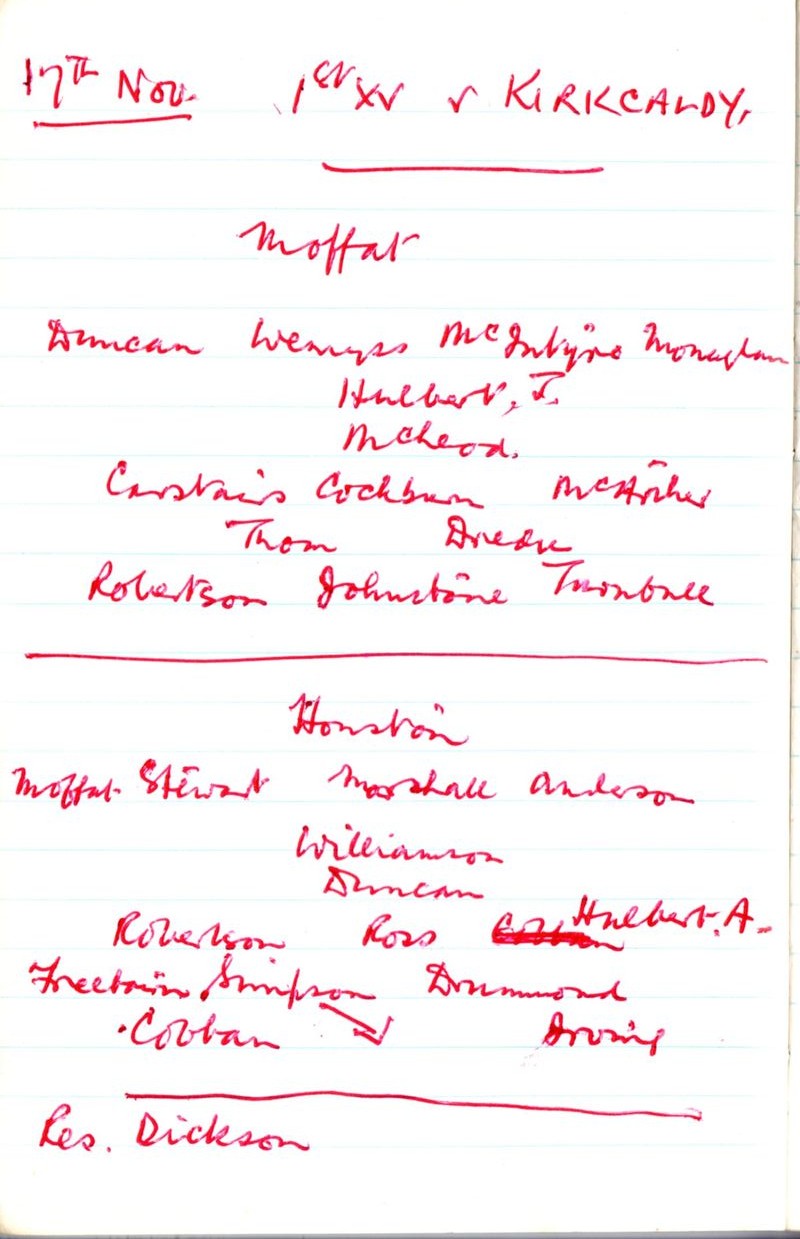 17TH Nov. 1ST XV v KIRKCALDY.
Moffat
Duncan Wemyss McIntyre Monaghan
Hulbert, J.
McLeod.
Carstairs Cockburn McArthur
Thom
Robertson Johnstone Turnbull
Houston
Moffat Stewart Marshall Anderson
Williamson
Duncan
Robertson Ross Hulbert. A.
Simpson Drummond
Cobban Irving
Res. Dickson